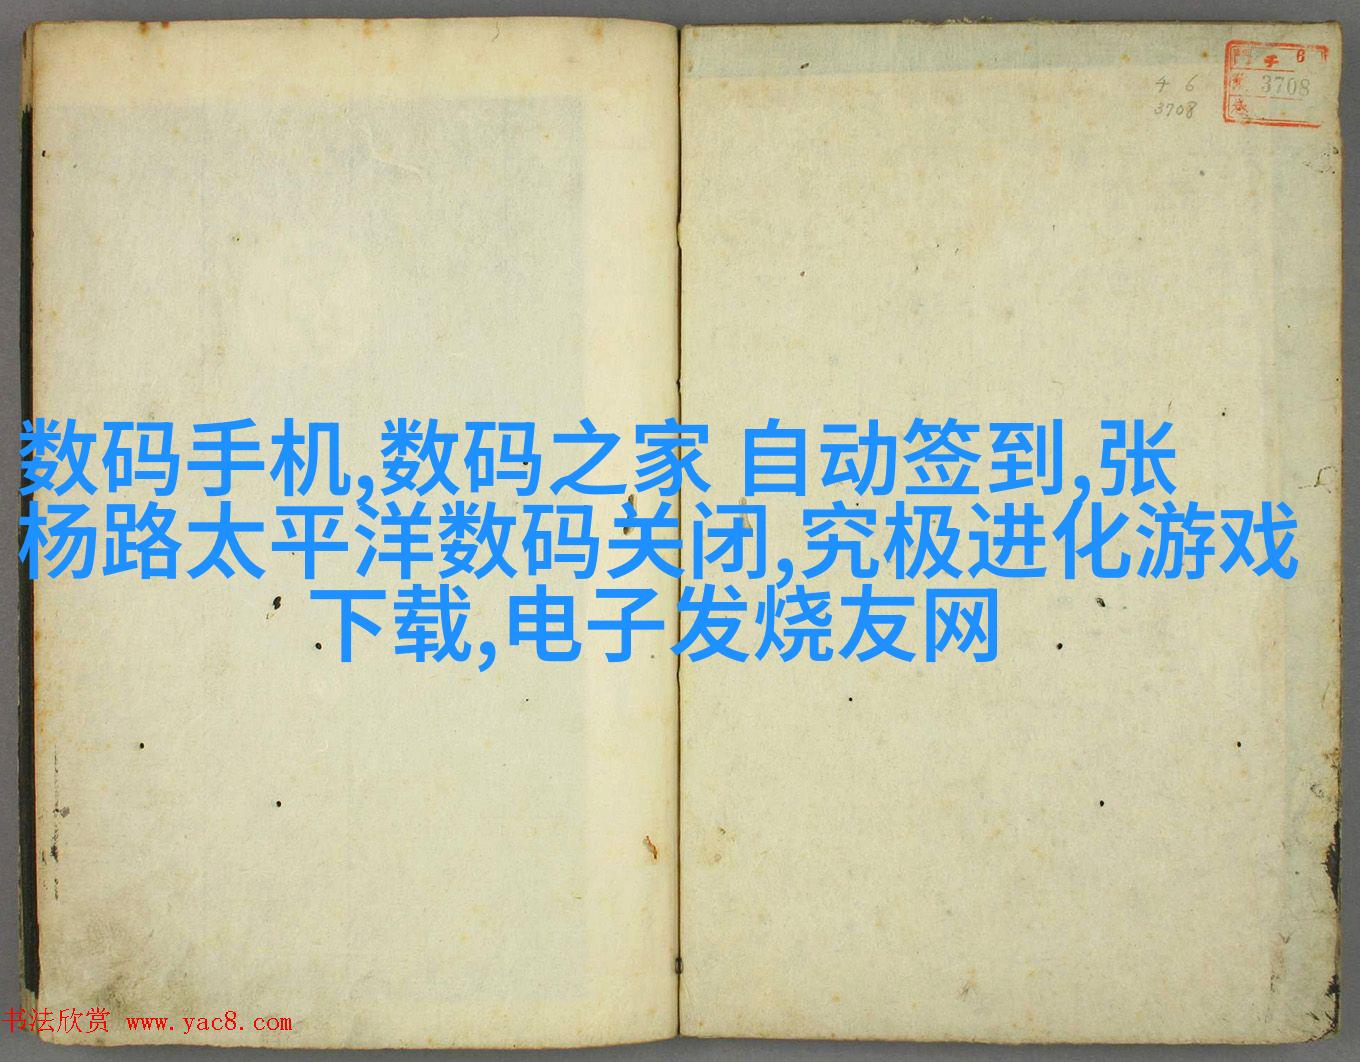 6
3708
4 6
3708
数码手机,数码之家 自动签到,张
杨路太平洋数码关闭,究极进化游戏
下载,电子发烧友网
书法欣赏 www.yac8.com